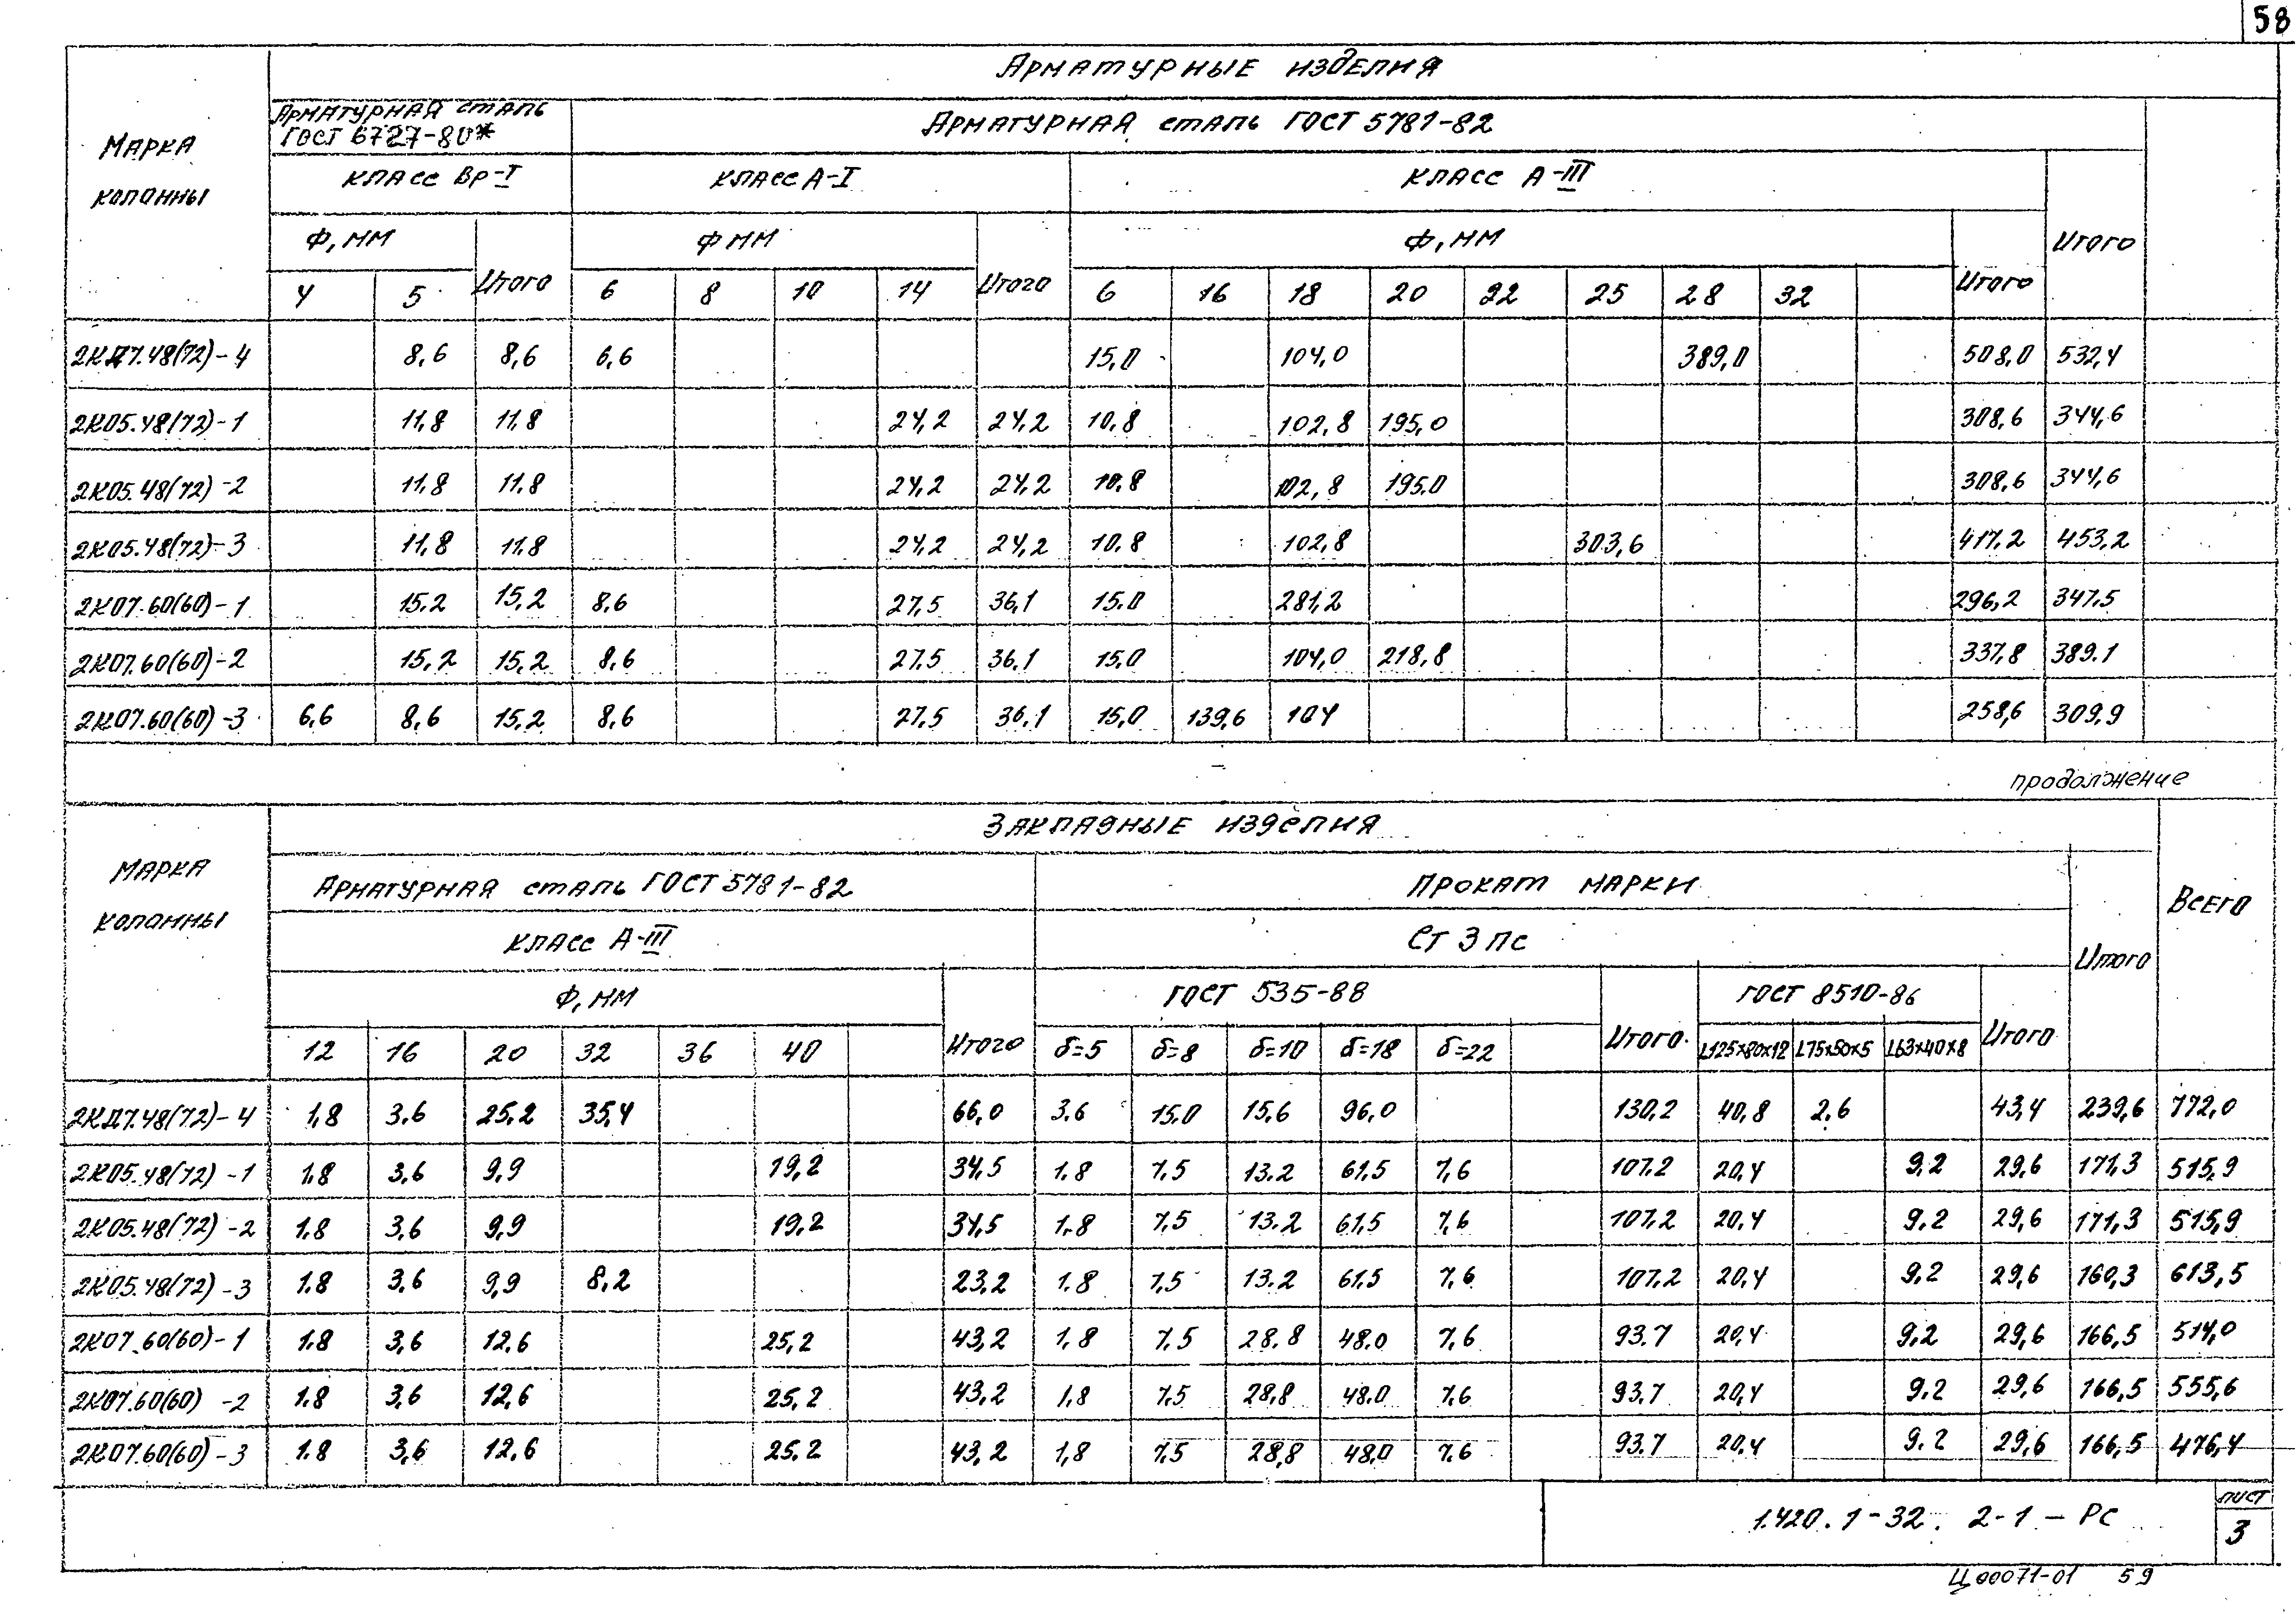 58
Арматурные изделия
Марка колонны
Арматурная сталь ГОСТ 6727-80*
Арматурная сталь ГОСТ 5781-82
класс Вр-I
класс А-I
класс А-III
Итого
Ф, мм
Итого
Ф мм
Итого
Ф, мм
Итого
4 5 6 8 10 14 6 16 18 20 22 25 28 32
2КД7.48(72)-4 8,6 8,6 6,6 15,0 104,0 389,0 508,0 532,4
2К05.48(72)-1 11,8 11,8 24,2 24,2 10,8 102,8 195,0 308,6 344,6
2К05.48(72)-2 11,8 11,8 24,2 24,2 10,8 102,8 195.0 308,6 344,6
2К05.48(72)-3 11,8 11,8 24,2 24,2 10.8 102,8 303,6 417.2 453,2
2К07.60(60)-1 15,2 15,2 8,6 27,5 36,1 15.0 281,2 296,2 347,5
2К07.60(60)-2 15,2 15,2 8,6 27,5 36,1 15,0 104,0 218,8 337,8 389.1
2К07.60(60)-3 6,6 8,6 15,2 8,6 27,5 36,1 15,0 139,6 104 258,6 309,9
продолжение
Закладные изделия
Марка колонны
Всего
Арматурная сталь ГОСТ 5781-82
Прокат марки
Итого
класс А-III
Ст 3 пс
Ф, мм
Итого
ГОСТ 535-88
Итого
ГОСТ 8510-86
Итого
12 16 20 32 36 40 δ=5 δ=8 δ=10 δ=18 δ=22 L125х80х12 L75х50х5 L63х40х8
2КД7.48(72)-4 1,8 3,6 25,2 35,4 66,0 3,6 15,0 15,6 96,0 130,2 40,8 2,6 43,4 239,6 772,0
2К05.48(72)-1 1,8 3,6 9,9 19,2 34,5 1.8 7,5 13.2 61,5 7,6 107.2 20,4 9,2 29,6 171,3 515,9
2К05.48(72)-2 1.8 3,6 9,9 19,2 34,5 1.8 7,5 13.2 61,5 7,6 107,2 20,4 9.2 29,6 171,3 515,9
2К05.48(72)-3 1.8 3,6 9,9 8,2 23,2 1.8 7,5 13.2 61,5 7,6 107.2 20,4 9,2 29,6 160,3 613,5
2К07.60(60)-1 1.8 3,6 12,6 25,2 43,2 1,8 7,5 28,8 48.0 7,6 93.7 20,4 9,2 29,6 166,5 514,0
2К07.60(60)-2 1.8 3,6 12,6 25,2 43,2 1,8 7,5 28,8 48.0 7,6 93.7 20,4 9.2 29,6 166,5 555,6
2К07.60(60)-3 1.8 3,6 12,6 25.2 43,2 1,8 7,5 28,8 48,0 7,6 93.7 20,4 9.2 29,6 166,5 476,4
1.420.1-32. 2-1-РС
лист
3
Ц00071-01 59